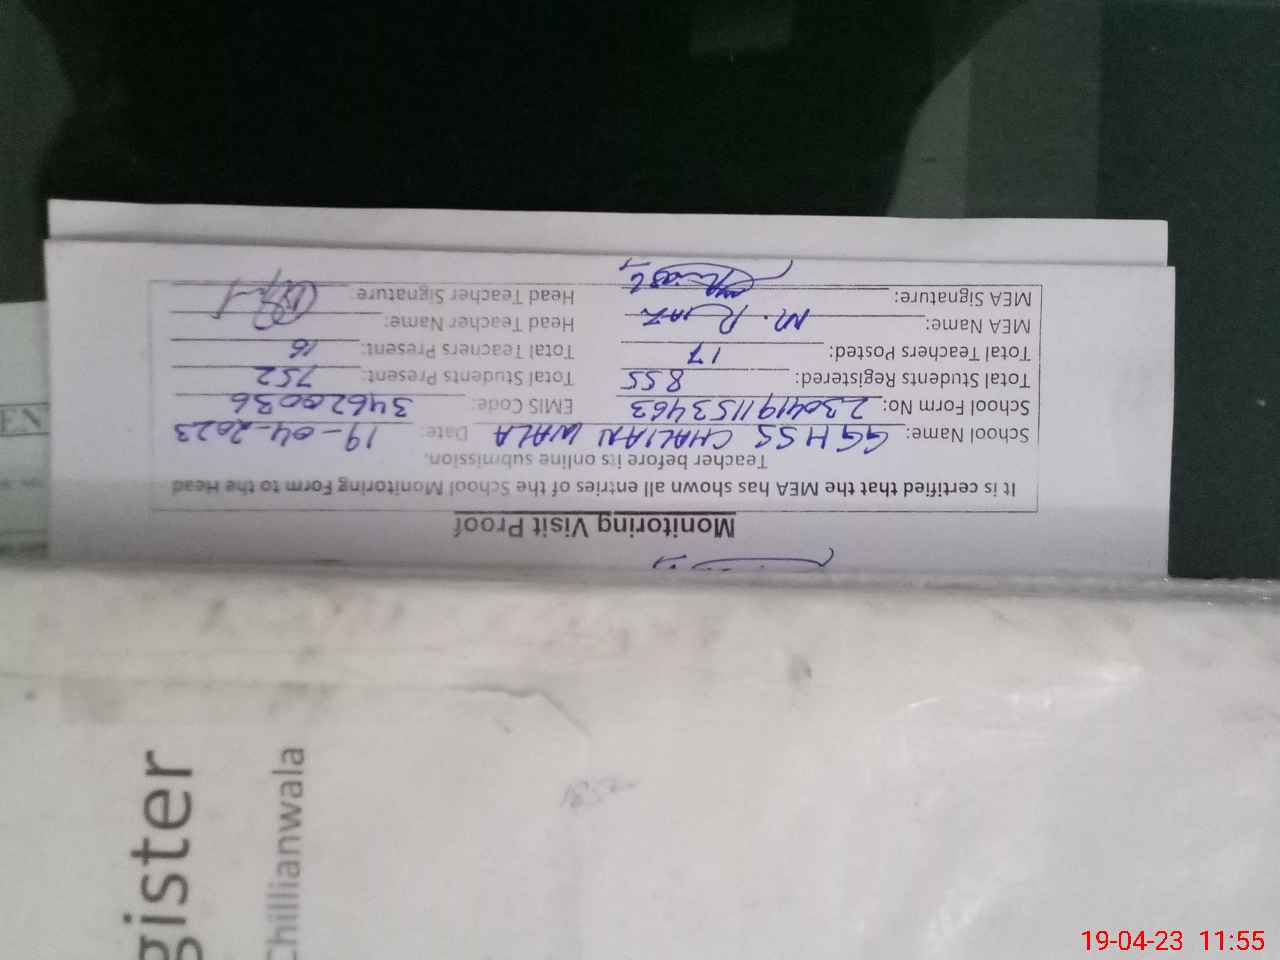 Monitoring Visit Proof
It is certified that the MEA has shown all entries of the School Monitoring Form to the Head
Teacher before its online submission.
School Name: GGHSS CHALIAN WALA Date: 19-04-2023
School Form No: 2304191153463 EMIS Code: 34620036
Total Students Registered: 855 Total Students Present: 752
Total Teachers Posted: 17 Total Teachers Present: 16
MEA Name: M. Riaz Head Teacher Name:
MEA Signature: Head Teacher Signature:
gister
Chillianwala
EN
19-04-23 11:55